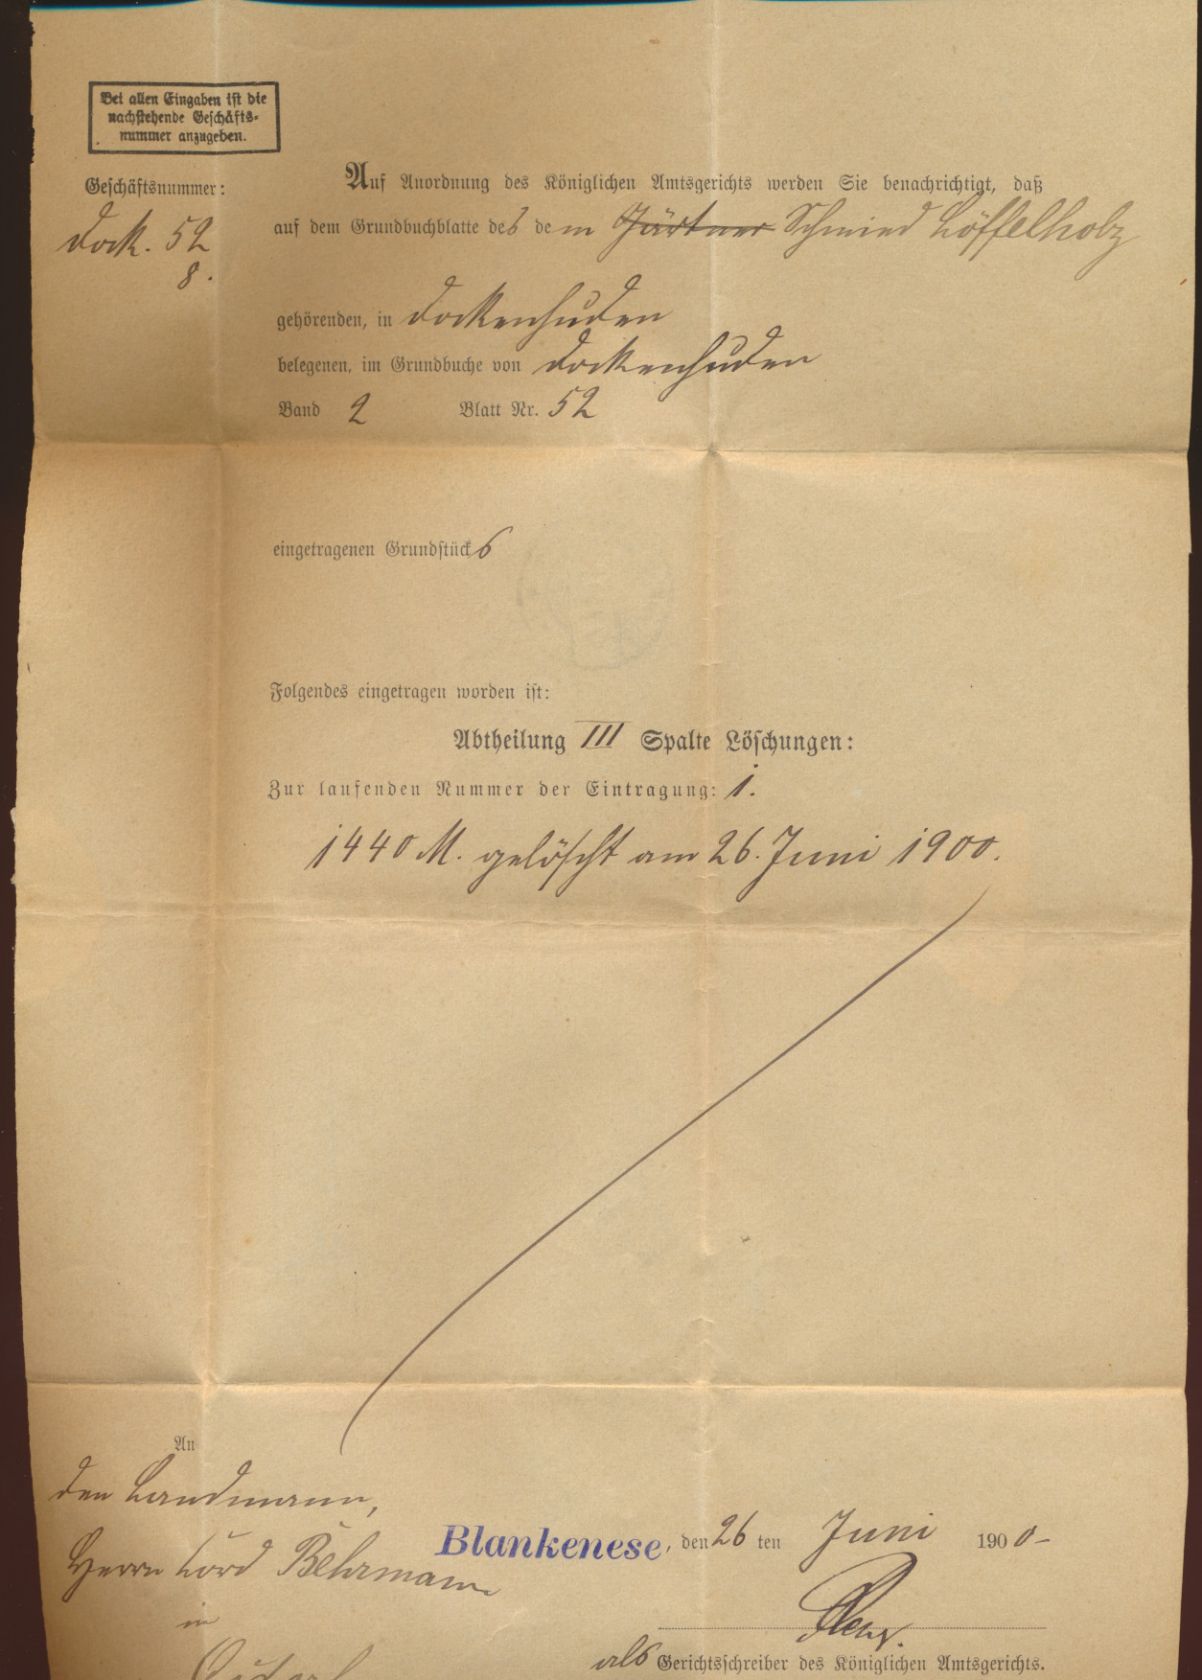 Bei allen Eingaben ist die
nachstehende Geschäfts-
nummer anzugeben.
Geschäftsnummer:
Dock. 52
8.
Auf Anordnung des Königlichen Amtsgerichts werden Sie benachrichtigt, daß
auf dem Grundbuchblatte des dem Gärtner Schmied Löffelholz
gehörenden, in Dockenhuden
belegenen, im Grundbuche von Dockenhuden
Band 2 Blatt Nr. 52
eingetragenen Grundstücks
Folgendes eingetragen worden ist:
Abtheilung III Spalte Löschungen:
Zur laufenden Nummer der Eintragung: 1.
1440 M. gelöscht am 26. Juni 1900.
An
den Landmann,
Herrn Behrmann
in
Blankenese, den 26 ten Juni 1900-
als Gerichtsschreiber des Königlichen Amtsgerichts.